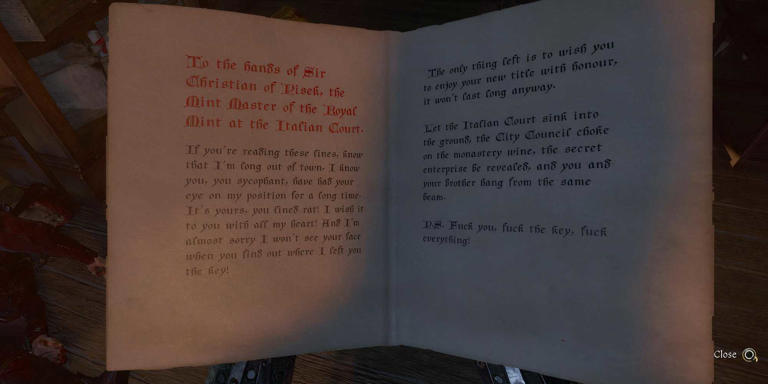 To the hands of Sir
Christian of Pisek, the
Mint Master of the Royal
Mint at the Italian Court.
If you're reading these lines, know
that I'm long out of town. I know
you, you sycophant, have had your
eye on my position for a long time.
It's yours, you lined rat! I wish it
to you with all my heart! And I'm
almost sorry I won't see your face
when you find out where I left you
the key!
The only thing left is to wish you
to enjoy your new title with honour,
it won't last long anyway.
Let the Italian Court sink into
the ground, the City Council choke
on the monastery wine, the secret
enterprise be revealed, and you and
your brother hang from the same
beam.
PS. Fuck you, fuck the key, fuck
everything!
Close